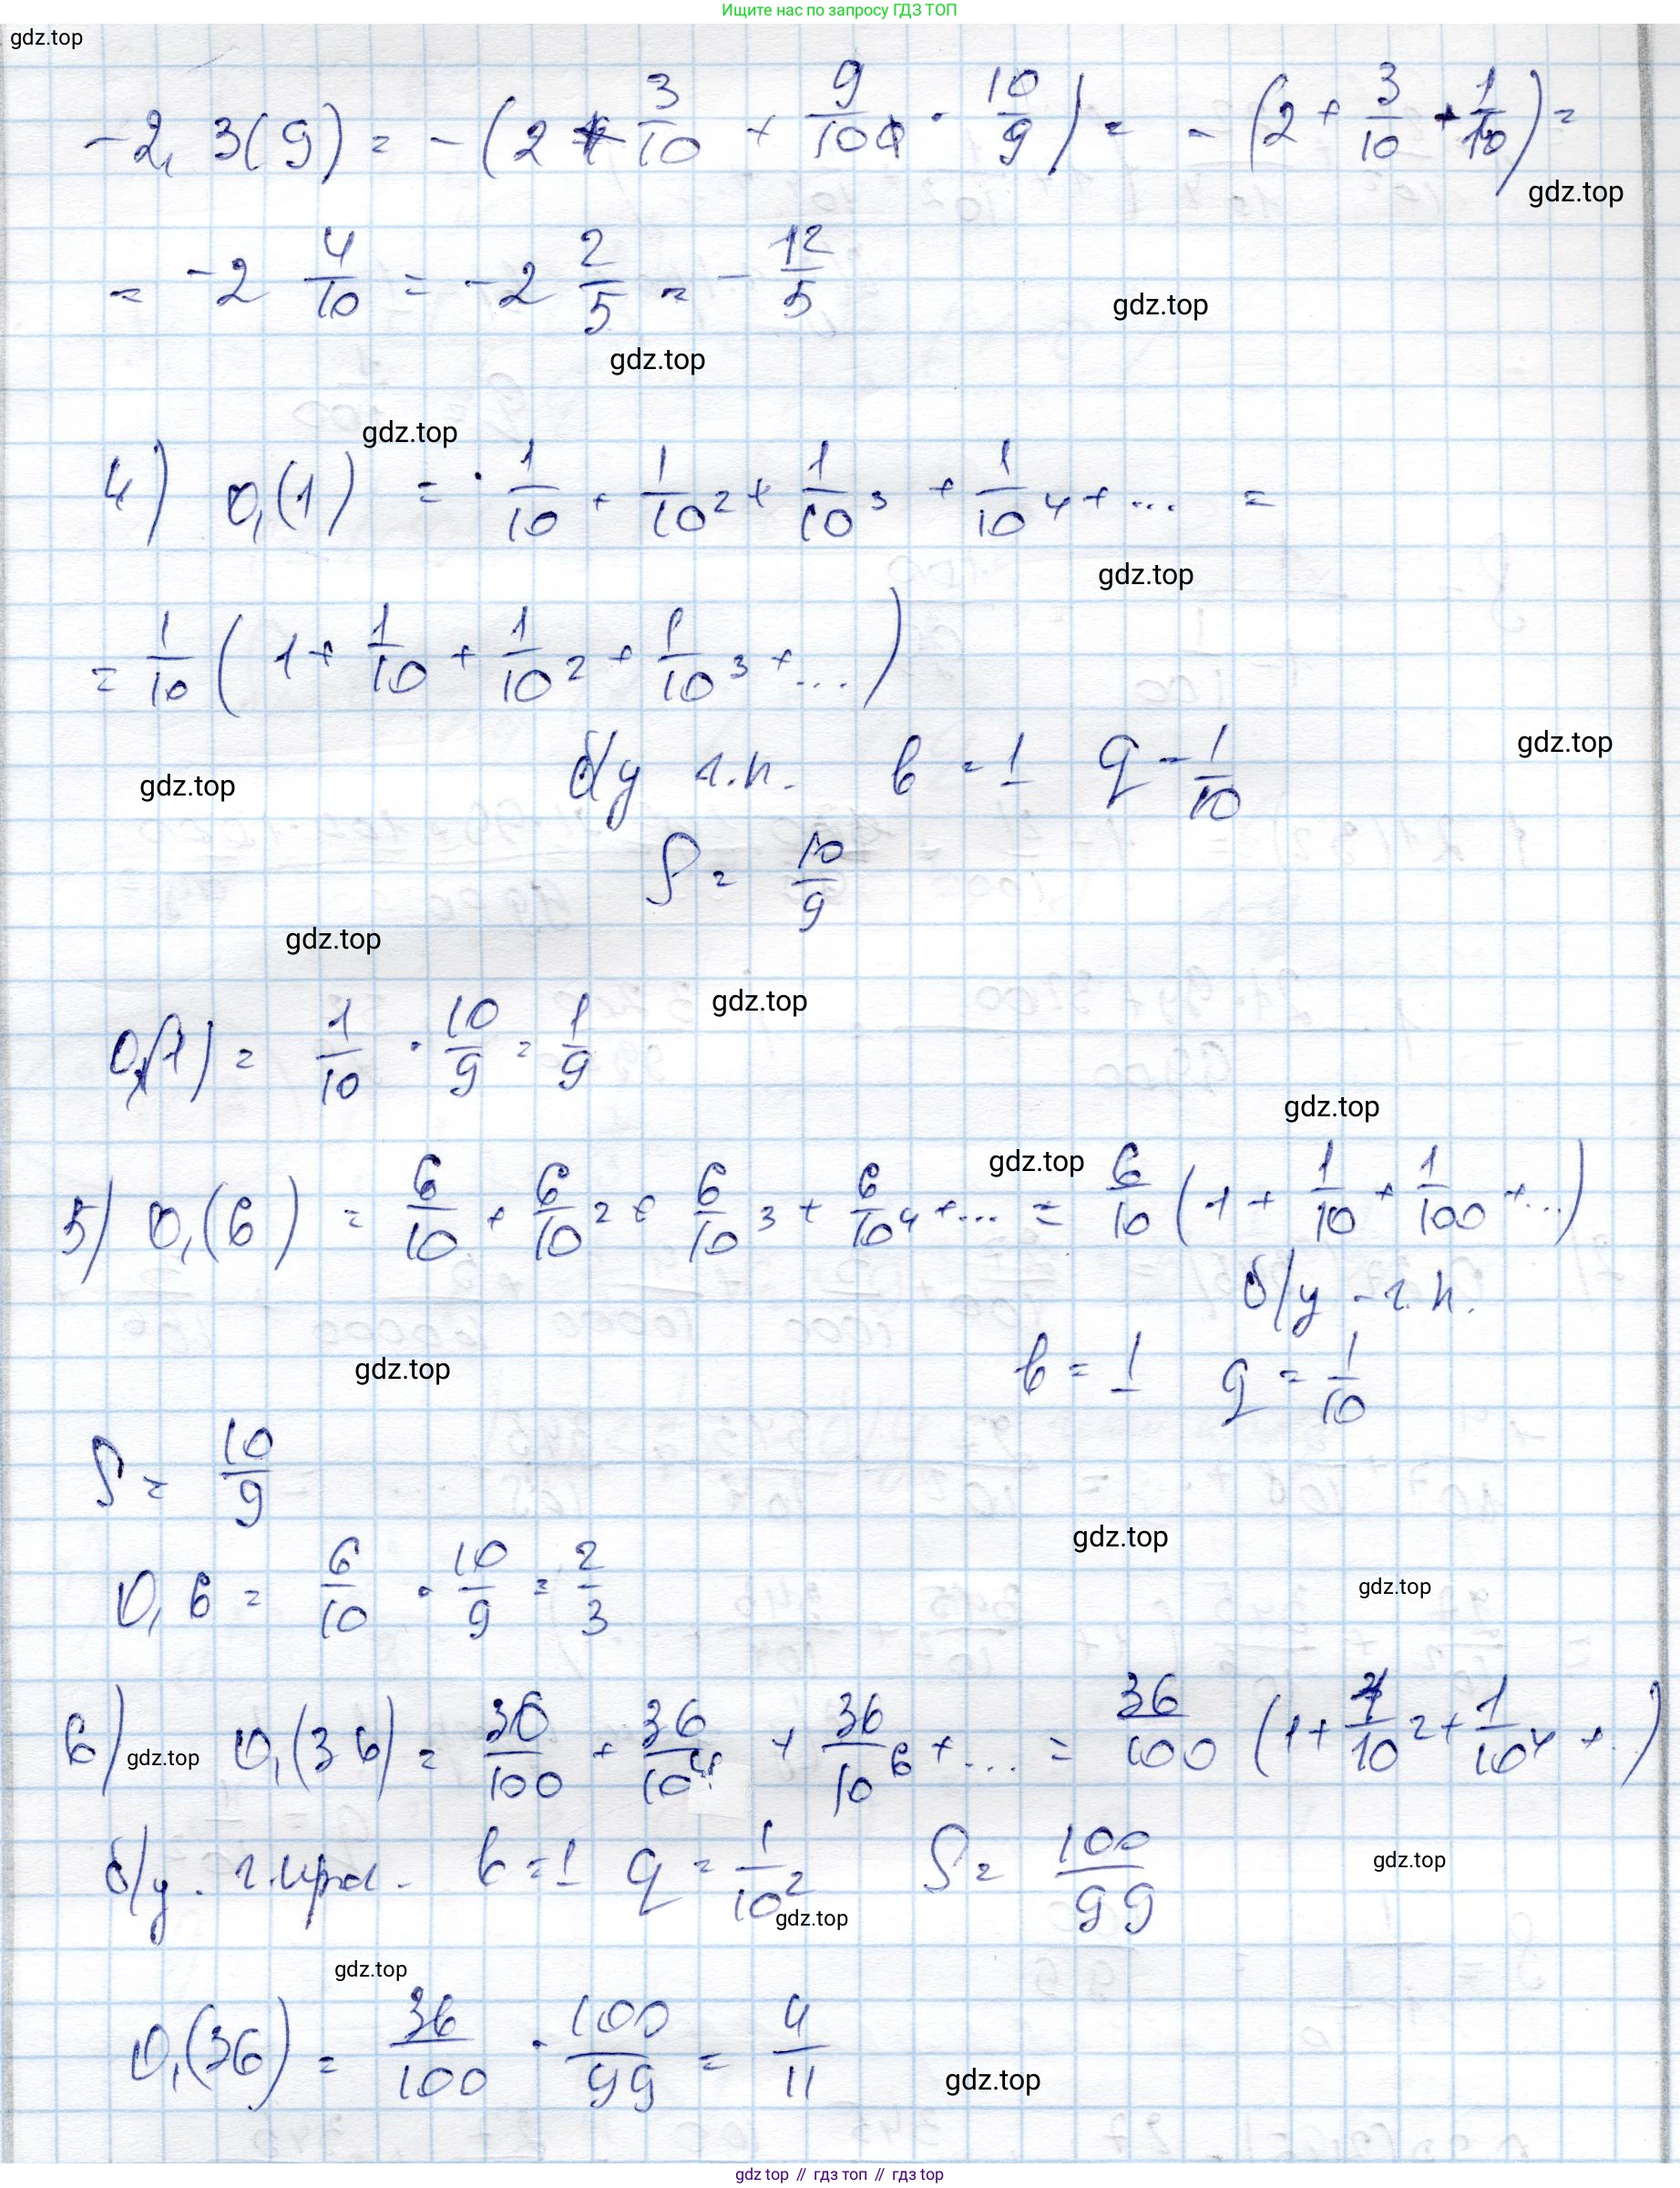 Ищите нас по запросу ГДЗ ТОП
gdz.top
-2,3(9) = -(2 + 3/10 + 9/100 · 10/9) = -(2 + 3/10 + 1/10) =
gdz.top
= -2 4/10 = -2 2/5 = -12/5
gdz.top
gdz.top
gdz.top
4) 0,(1) = 1/10 + 1/10² + 1/10³ + 1/10⁴ + ... =
gdz.top
= 1/10 (1 + 1/10 + 1/10² + 1/10³ + ...)
gdz.top
б/у г.п. b = 1 q = 1/10
gdz.top
S = 10/9
gdz.top
gdz.top
0,(1) = 1/10 · 10/9 = 1/9
gdz.top
gdz.top
5) 0,(6) = 6/10 + 6/10² + 6/10³ + 6/10⁴ + ... = 6/10 (1 + 1/10 + 1/100 + ...)
б/у - г.п.
gdz.top
b = 1 q = 1/10
S = 10/9
gdz.top
0,6 = 6/10 · 10/9 = 2/3
gdz.top
6) 0,(36) = 36/100 + 36/10⁴ + 36/10⁶ + ... = 36/100 (1 + 1/10² + 1/10⁴ + ..)
gdz.top
б/у. г.пр. b = 1 q = 1/10² S = 100/99
gdz.top
gdz.top
gdz.top
0,(36) = 36/100 · 100/99 = 4/11
gdz.top
gdz top // гдз топ // гдз top